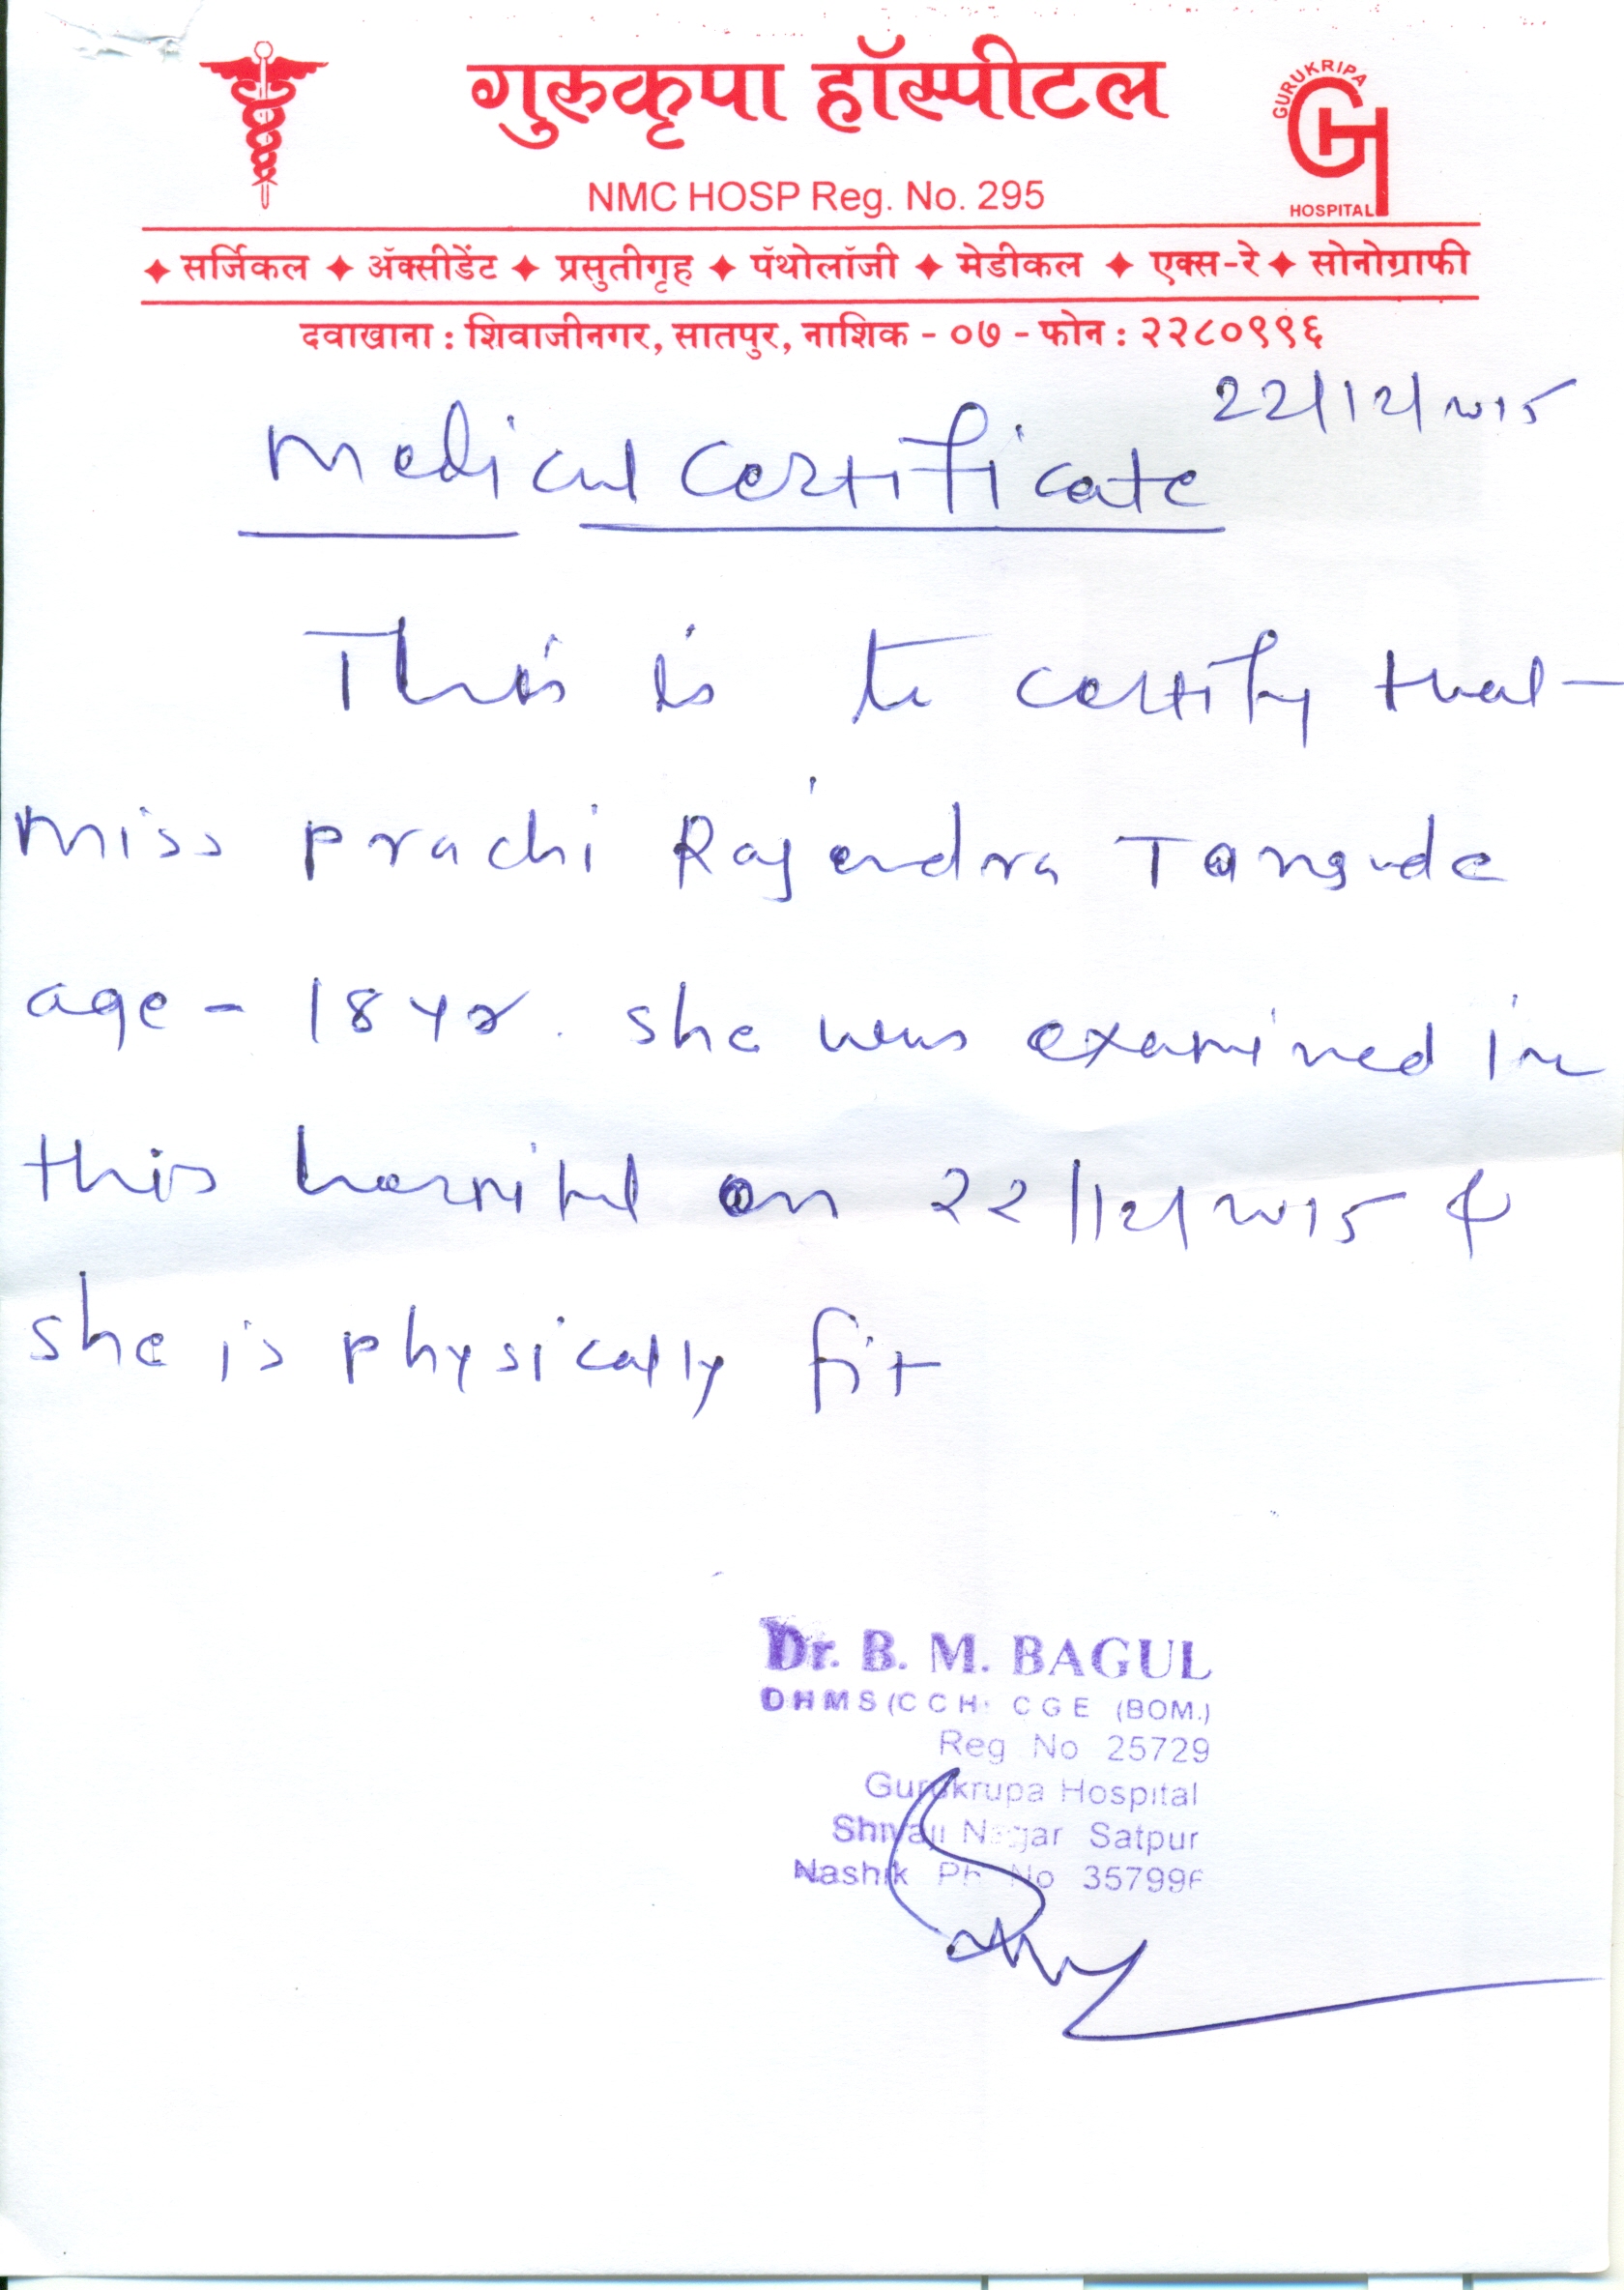 गुरुकृपा हॉस्पीटल
GURUKRIPA
HOSPITAL
NMC HOSP Reg. No. 295
✦ सर्जिकल ✦ ॲक्सीडेंट ✦ प्रसुतीगृह ✦ पॅथोलॉजी ✦ मेडीकल ✦ एक्स-रे ✦ सोनोग्राफी
दवाखाना : शिवाजीनगर, सातपुर, नाशिक - ०७ - फोन : २२८०९९६
22/12/2015
Medical Certificate
This is to certify that
Miss Prachi Rajendra Tansude
age - 18 yr. she was examined in
this hospital on 22/12/2015 &
she is physically fit
Dr. B. M. BAGUL
DHMS (CCH) CGE (BOM.)
Reg No 25729
Gurukrupa Hospital
Shivaji Nagar Satpur
Nashik Ph No 357996